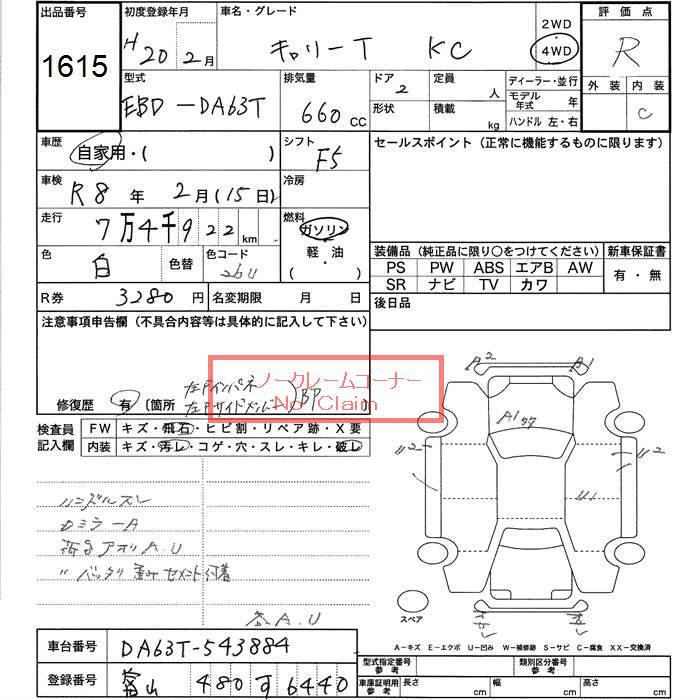 出品番号 初度登録年月 車名・グレード 2WD 評価点
1615 H20 2月 キャリーT KC 4WD R
型式 排気量 ドア 定員 ディーラー・並行 外装 内装
EBD-DA63T 660cc 2 人 モデル年式 年 C
形状 積載 kg ハンドル 左・右
車歴 自家用・( ) シフト F5 セールスポイント(正常に機能するものに限ります)
車検 R8年 2月(15日) 冷房
走行 7万4千922km 燃料 ガソリン
色 白 色替 色コード 26U 軽・油 ( )
装備品(純正品に限り○をつけてください) 新車保証書
PS PW ABS エアB AW 有・無
SR ナビ TV カワ
R券 3280円 名変期限 月 日 後日品
注意事項申告欄(不具合内容等は具体的に記入して下さい)
ノークレームコーナー
No Claim
修復歴 有 〔箇所 左Fインパネ
左Fサイドメンバー )BP
検査員記入欄 FW キズ・飛石・ヒビ割・リペア跡・X要
内装 キズ・汚レ・コゲ・穴・スレ・キレ・破レ
A2 B1
A1 U2 U2
U1
ハンドルスレ
カミラーA
荷台アオリA.U
〃 バッタリ歪み セメント付着
A.U
スペア
A-キズ E-エクボ U-凹み W-補修跡 S-サビ C-腐食 XX-交換済
車台番号 DA63T-543884
登録番号 富山 480 す 6440
型式指定番号 参考 類別区分番号 参考
車庫証明用 参考 長さ cm 幅 cm 高さ cm